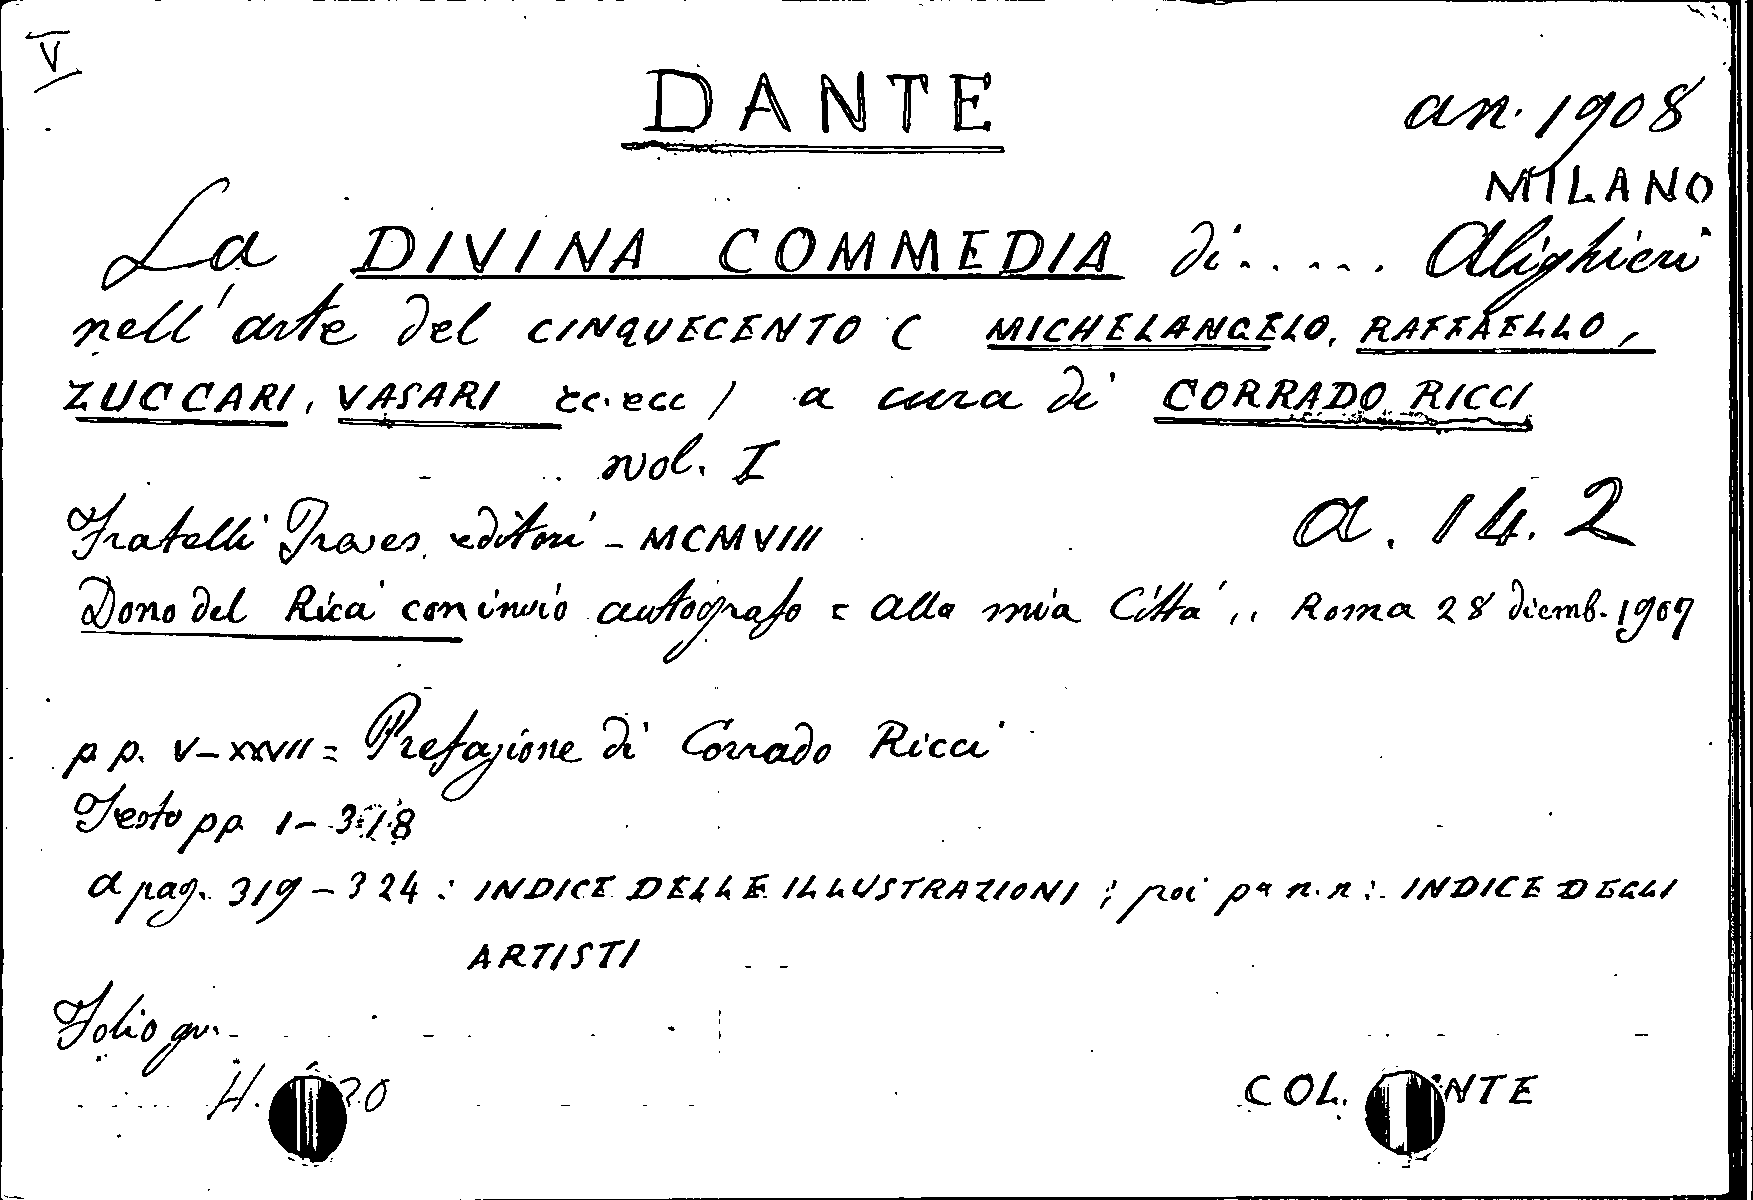 V
DANTE
an. 1908
MILANO
La DIVINA COMMEDIA di..... Alighieri
nell'arte del CINQUECENTO ( MICHELANGELO, RAFFAELLO,
ZUCCARI, VASARI ecc. ecc ) a cura di CORRADO RICCI
vol. I
Fratelli Treves, editori - MCMVIII
a. 14. 2
Dono del Ricci con invio autografo = alla mia Città ,, Roma 28 dicemb. 1907
pp. V-XXVII = Prefazione di Corrado Ricci
Testo pp. 1-318
a pag. 319-324 : INDICE DELLE ILLUSTRAZIONI ; poi pa n.n : INDICE DEGLI
ARTISTI
Folio gr.
COL.